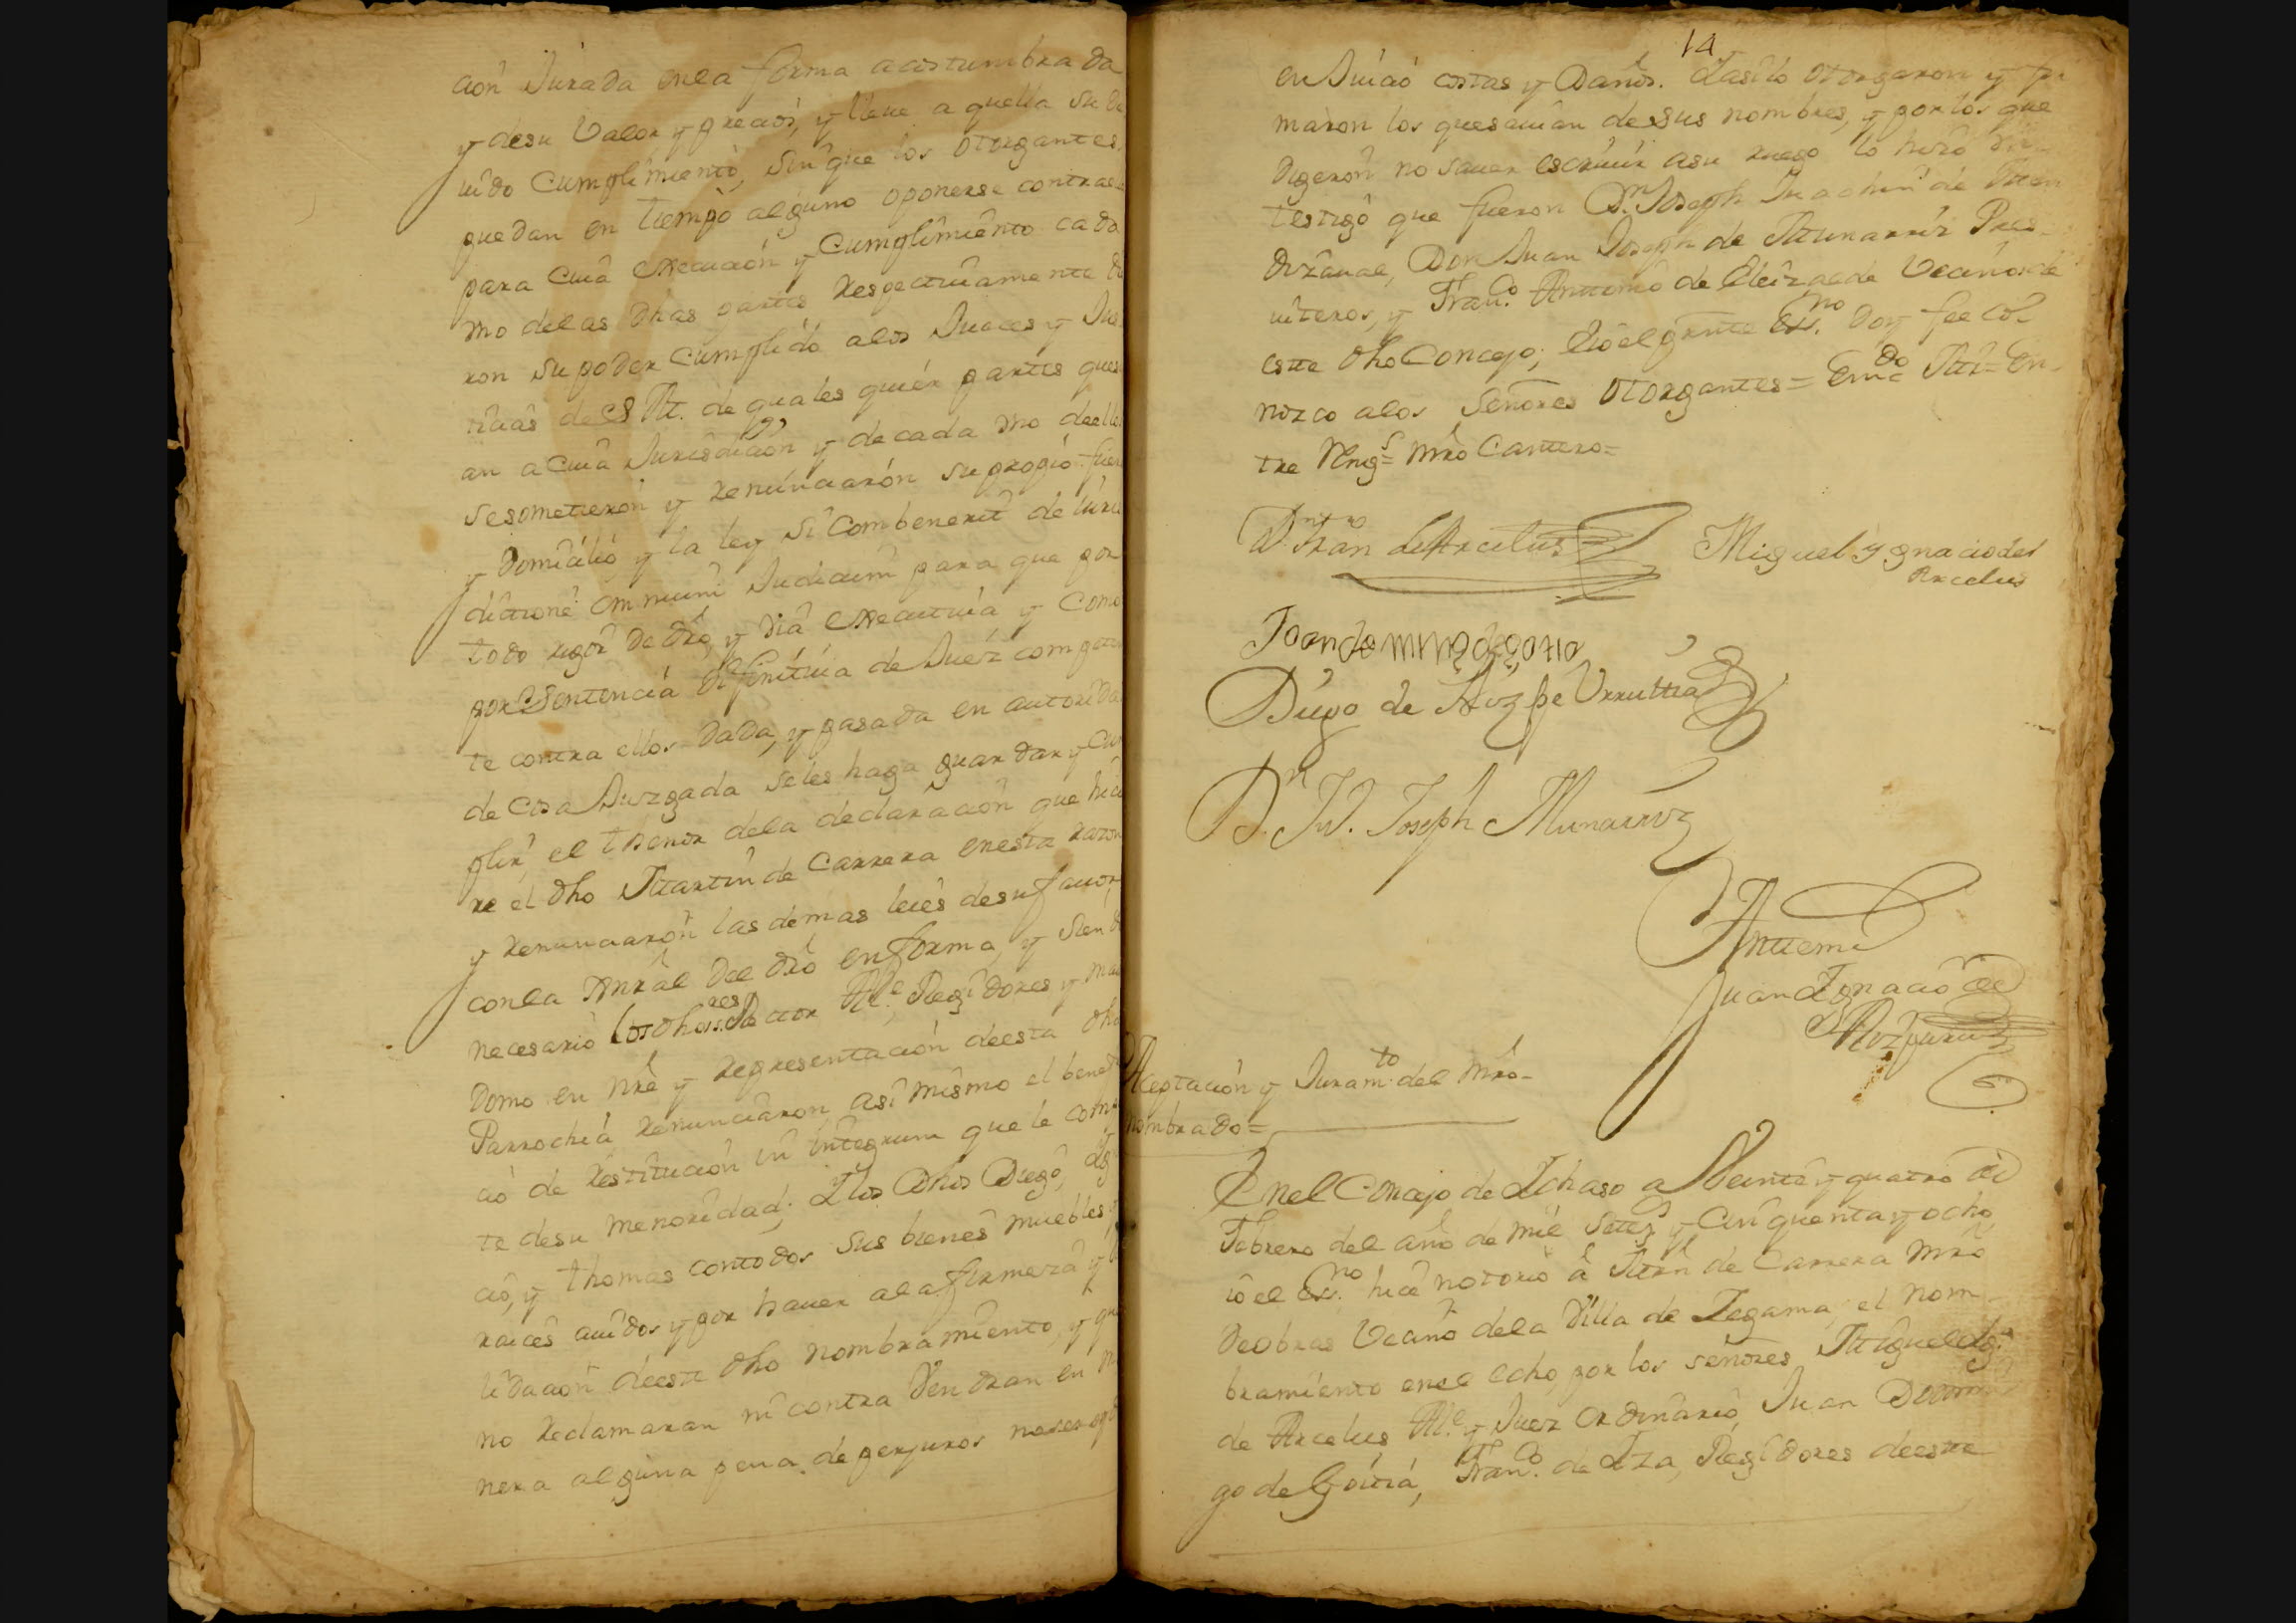 cion Jurada en la forma acostumbrada
y desu Valor y precios, y lleve a quella su de
uido Cumplimiento, sin que los otorgantes,
puedan en tiempo alguno oponerse contra
para Cuia execucion y Cumplimiento cada
vno delas dhas partes respectiuamente die
ron su poder Cumplido alos Jueces y Jus
ticias de S. M. de quales quier partes que se
an a Cuia Jurisdicion y de cada vno de ellos
se sometieron y renunciaron su propio fuero
y Domicilio y la ley si Combenerit de Juris
dictione omnium Judicum para que por
todo rigor de dro, y via executiua y Como
por Sentencia difinitiua de Juez competen
te contra ellos dada, y pasada en autorida
de Cosa Juzgada seles haga guardar y Cum
plir, el thenor dela declaracion que hicie
re el dho Martin de Carrera en esta razon
y renunciaron las demas leies desu fauor,
conla Gnral del dro en forma, y siendo
necesario los dhos res. Rector Alle. Regidores y mai
Domo en nre y representacion de esta dha
Parrochia renunciaron asi mismo el benefi
cio de restitucion in integrum que le compe
te desu menoridad; y los dhos Diego, Ig
cio, y thomas con todos sus bienes muebles, y
raices auidos y por hauer ala firmeza y va
lidacion deeste dho nombramiento, y que
no reclamaran ni contra Vendran en ma
nera alguna pena de perjuros no ser oydos
14
en Juicio costas y Daños. Y asi lo otorgaron y fir
maron los que sauian de sus nombres, y por los que
Digeron no sauer escriuir asu ruego lo hizo vn
testigo que fueron Dn. Joseph Juachin de
Dizaual, Don Juan Joseph de Munarriz Pres-
uiteros, y Franco. Antonio de Eleizalde Vecinos de
este dho Concejo; E io el prnte Essno. doy fee co-
nozco alos Señores otorgantes = Emdo
tre Rng.s = mro Cantero =
Dn. Fran de Arcelus
Miguel Ygnacio de
Arcelus
Joan domingo de goitia
Diego de Aizpe Urrutia
Dn. Ju. Joseph Munarriz
Antemi
Juan Ignacio de
Aizpuru
Aceptacion y Juramto. del Mro-
nombrado =
En el Concejo de Ichaso a Veinte y quatro de
Febrero del año de mil setezs. y Cinquenta y ocho,
io el Esno. hice notorio â Mrn de Carrera Mro
De obras Vecino dela Villa de Zegama, el nom-
bramiento en el echo, por los señores Miguel Ig.
de Arcelus Alle. y Juez ordinario, Juan Domin
go de Goitia, Franco. de Iza, Regidores deeste